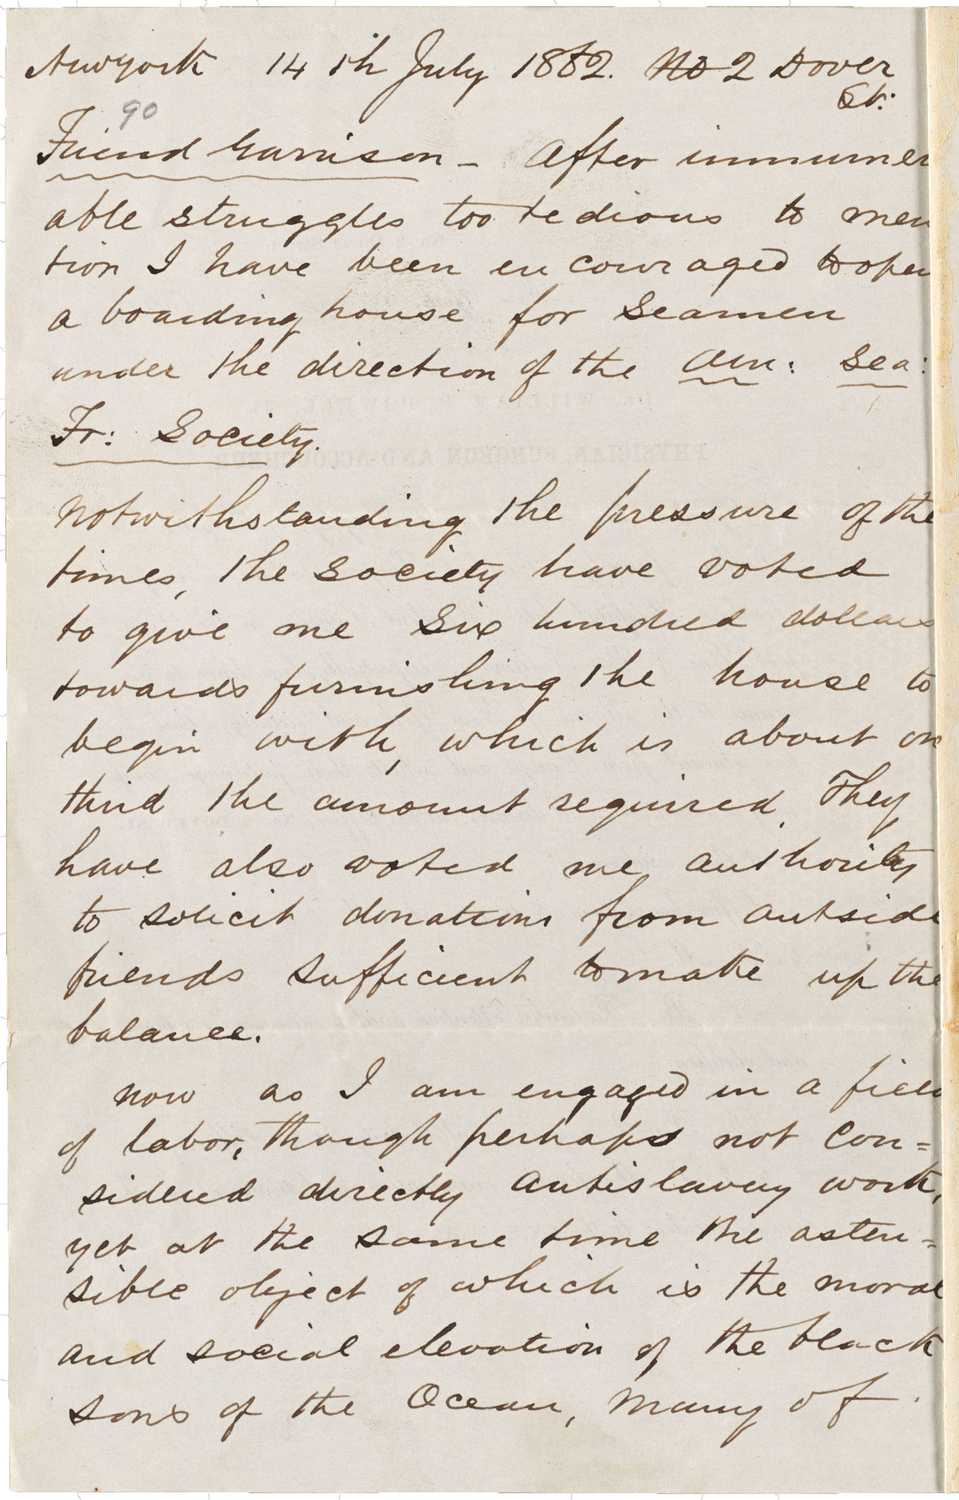 Newyork 14th July 1862. No 2 Dover
St.
90
Friend Garrison - After innumer
able struggles too tedious to men
tion I have been encouraged to open
a boarding house for Seamen
under the direction of the Am: Sea:
Fr: Society.
Notwithstanding the pressure of the
times, the Society have voted
to give me Six hundred dollars
towards furnishing the house to
begin with, which is about on
third the amount required. They
have also voted me authority
to solicit donations from outside
friends sufficient to make up the
balance.
Now as I am engaged in a field
of labor, though perhaps not con=
sidered directly antislavery work,
yet at the same time the osten=
sible object of which is the moral
and social elevation of the black
sons of the Ocean, many of